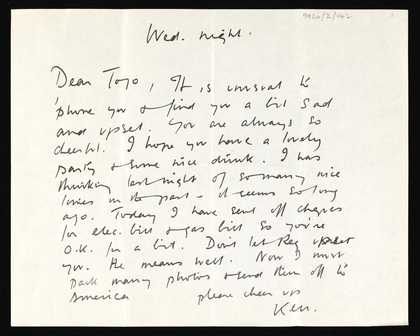 9920/2/142
Wed. night.
Dear Toyo, It is unusual to
'phone you & find you a bit sad
and upset. You are always so
cheerful. I hope you have a lovely
party & some nice drink. I was
thinking last night of so many nice
times in the past – it seems so long
ago. Today I have sent off cheques
for elec. bill & gas bill so you're
O.K. for a bit. Don't let Reg upset
you. He means well. Now I must
pack many photos & send them off to
America please cheer up
Ken.